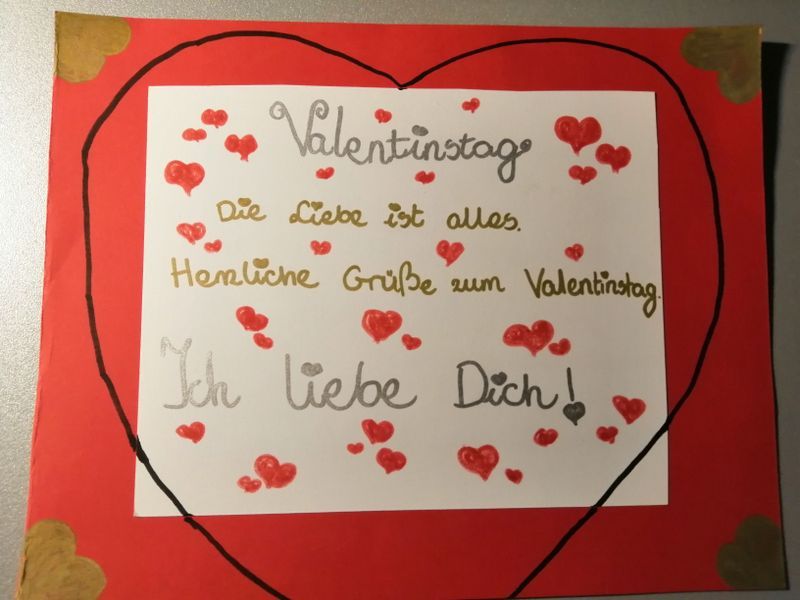 Valentinstag
Die Liebe ist alles.
Herzliche Grüße zum Valentinstag.
Ich liebe Dich!